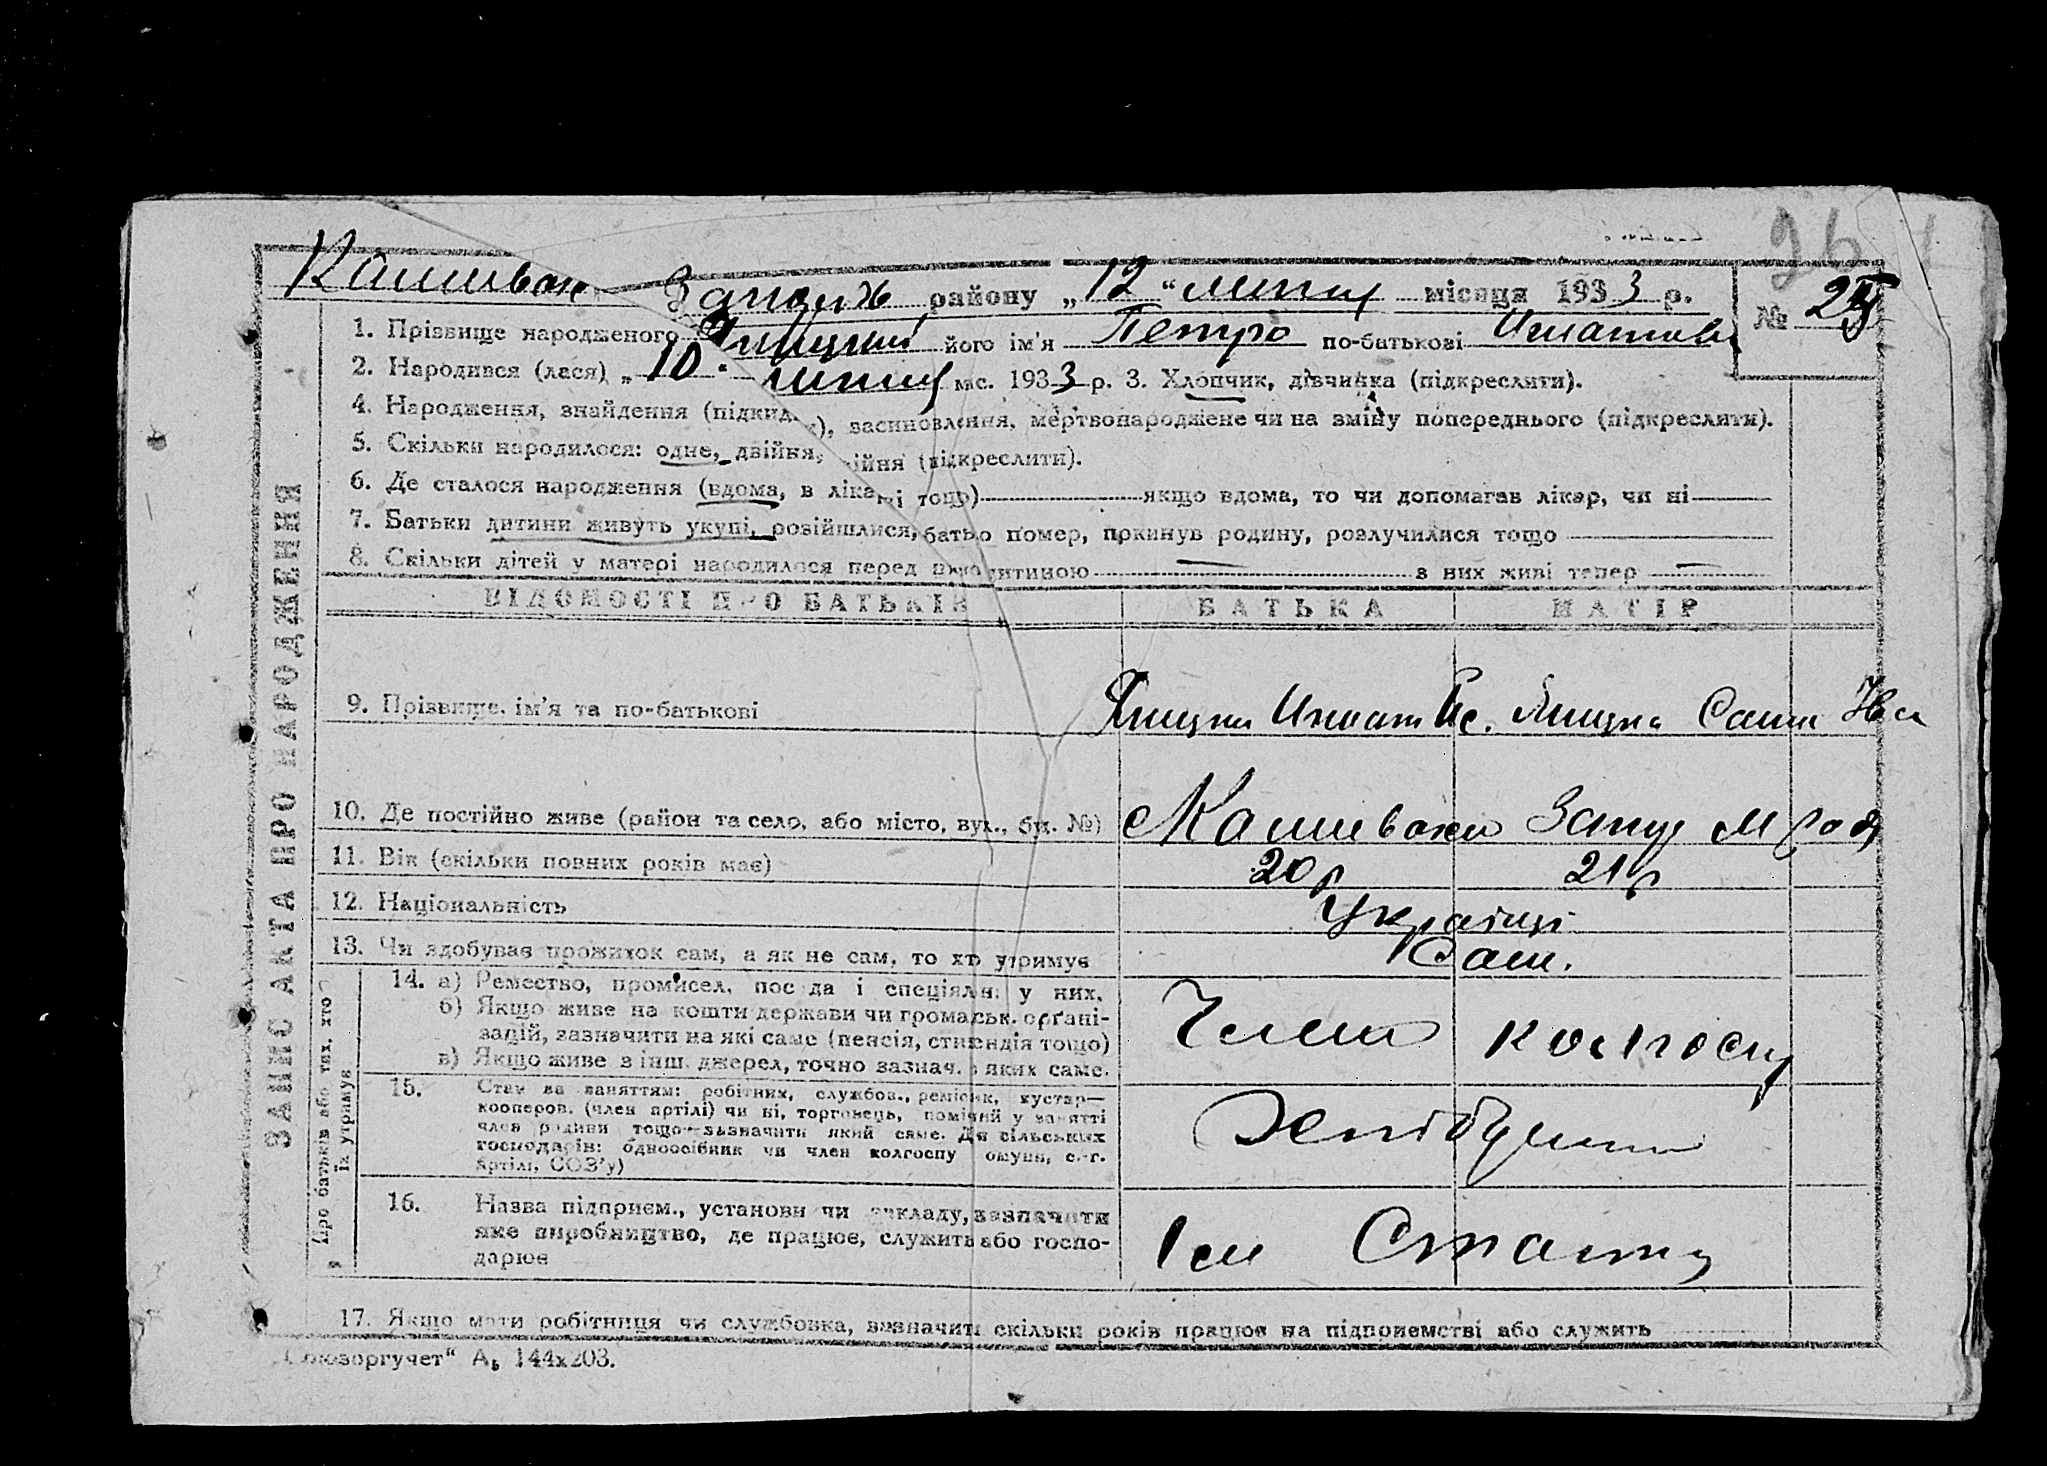 96
Кашивах Запоріж району „12“ липня місяця 1933 р.
№ 23
1. Прізвище народженого його ім'я Петро по-батькові Игнатов
2. Народився (лася) „10“ липня міс. 1933 р. 3. Хлопчик, дівчинка (підкреслити).
4. Народження, знайдення (підкидьк), засиновлення, мертвонароджене чи на зміну попереднього (підкреслити).
5. Скільки народилося: одне, двійня, трійня (підкреслити).
6. Де сталося народження (вдома, в лікарні тощо) якщо вдома, то чи допомагав лікар, чи ні
7. Батьки дитини живуть укупі, розійшлися, батько помер, покинув родину, розлучилися тощо
8. Скільки дітей у матері народилося перед цією дитиною — з них живі тепер —
ВІДОМОСТІ ПРО БАТЬКІВ БАТЬКА МАТІР
ЗАПИС АКТА ПРО НАРОДЖЕННЯ
9. Прізвище, ім'я та по-батькові
10. Де постійно живе (район та село, або місто, вул., буд. №)
11. Вік (скільки повних років має) 20 р 21 р
12. Національність Українці
13. Чи здобуває прожиток сам, а як не сам, то хто утримує Сам.
Про батьків або тих, хто їх утримує
14. а) Ремество, промисел, посада і спеціяльн. у них.
б) Якщо живе на кошти держави чи громадськ. орґані-
зацій, зазначити на які саме (пенсія, стипендія тощо)
в) Якщо живе з інш. джерел, точно зазнач. з яких саме.
Член колгоспу
15. Стан за заняттям: робітник, службов., ремісник, кустар—
кооперов. (член артілі) чи ні, торговець, помічний у занятті
член родини тощо—зазначити який саме. Для сільських
господарів: одноосібник чи член колгоспу комуни, с.-г.
артілі, СОЗ'у)
Хлібороби
16. Назва підприєм., установи чи закладу, зазначити
яке виробництво, де працює, служить або госпо-
дарює
17. Якщо мати робітниця чи службовка, зазначити скільки років працює на підприємстві або служить
„Союзоргучет“ А₅ 144х203.